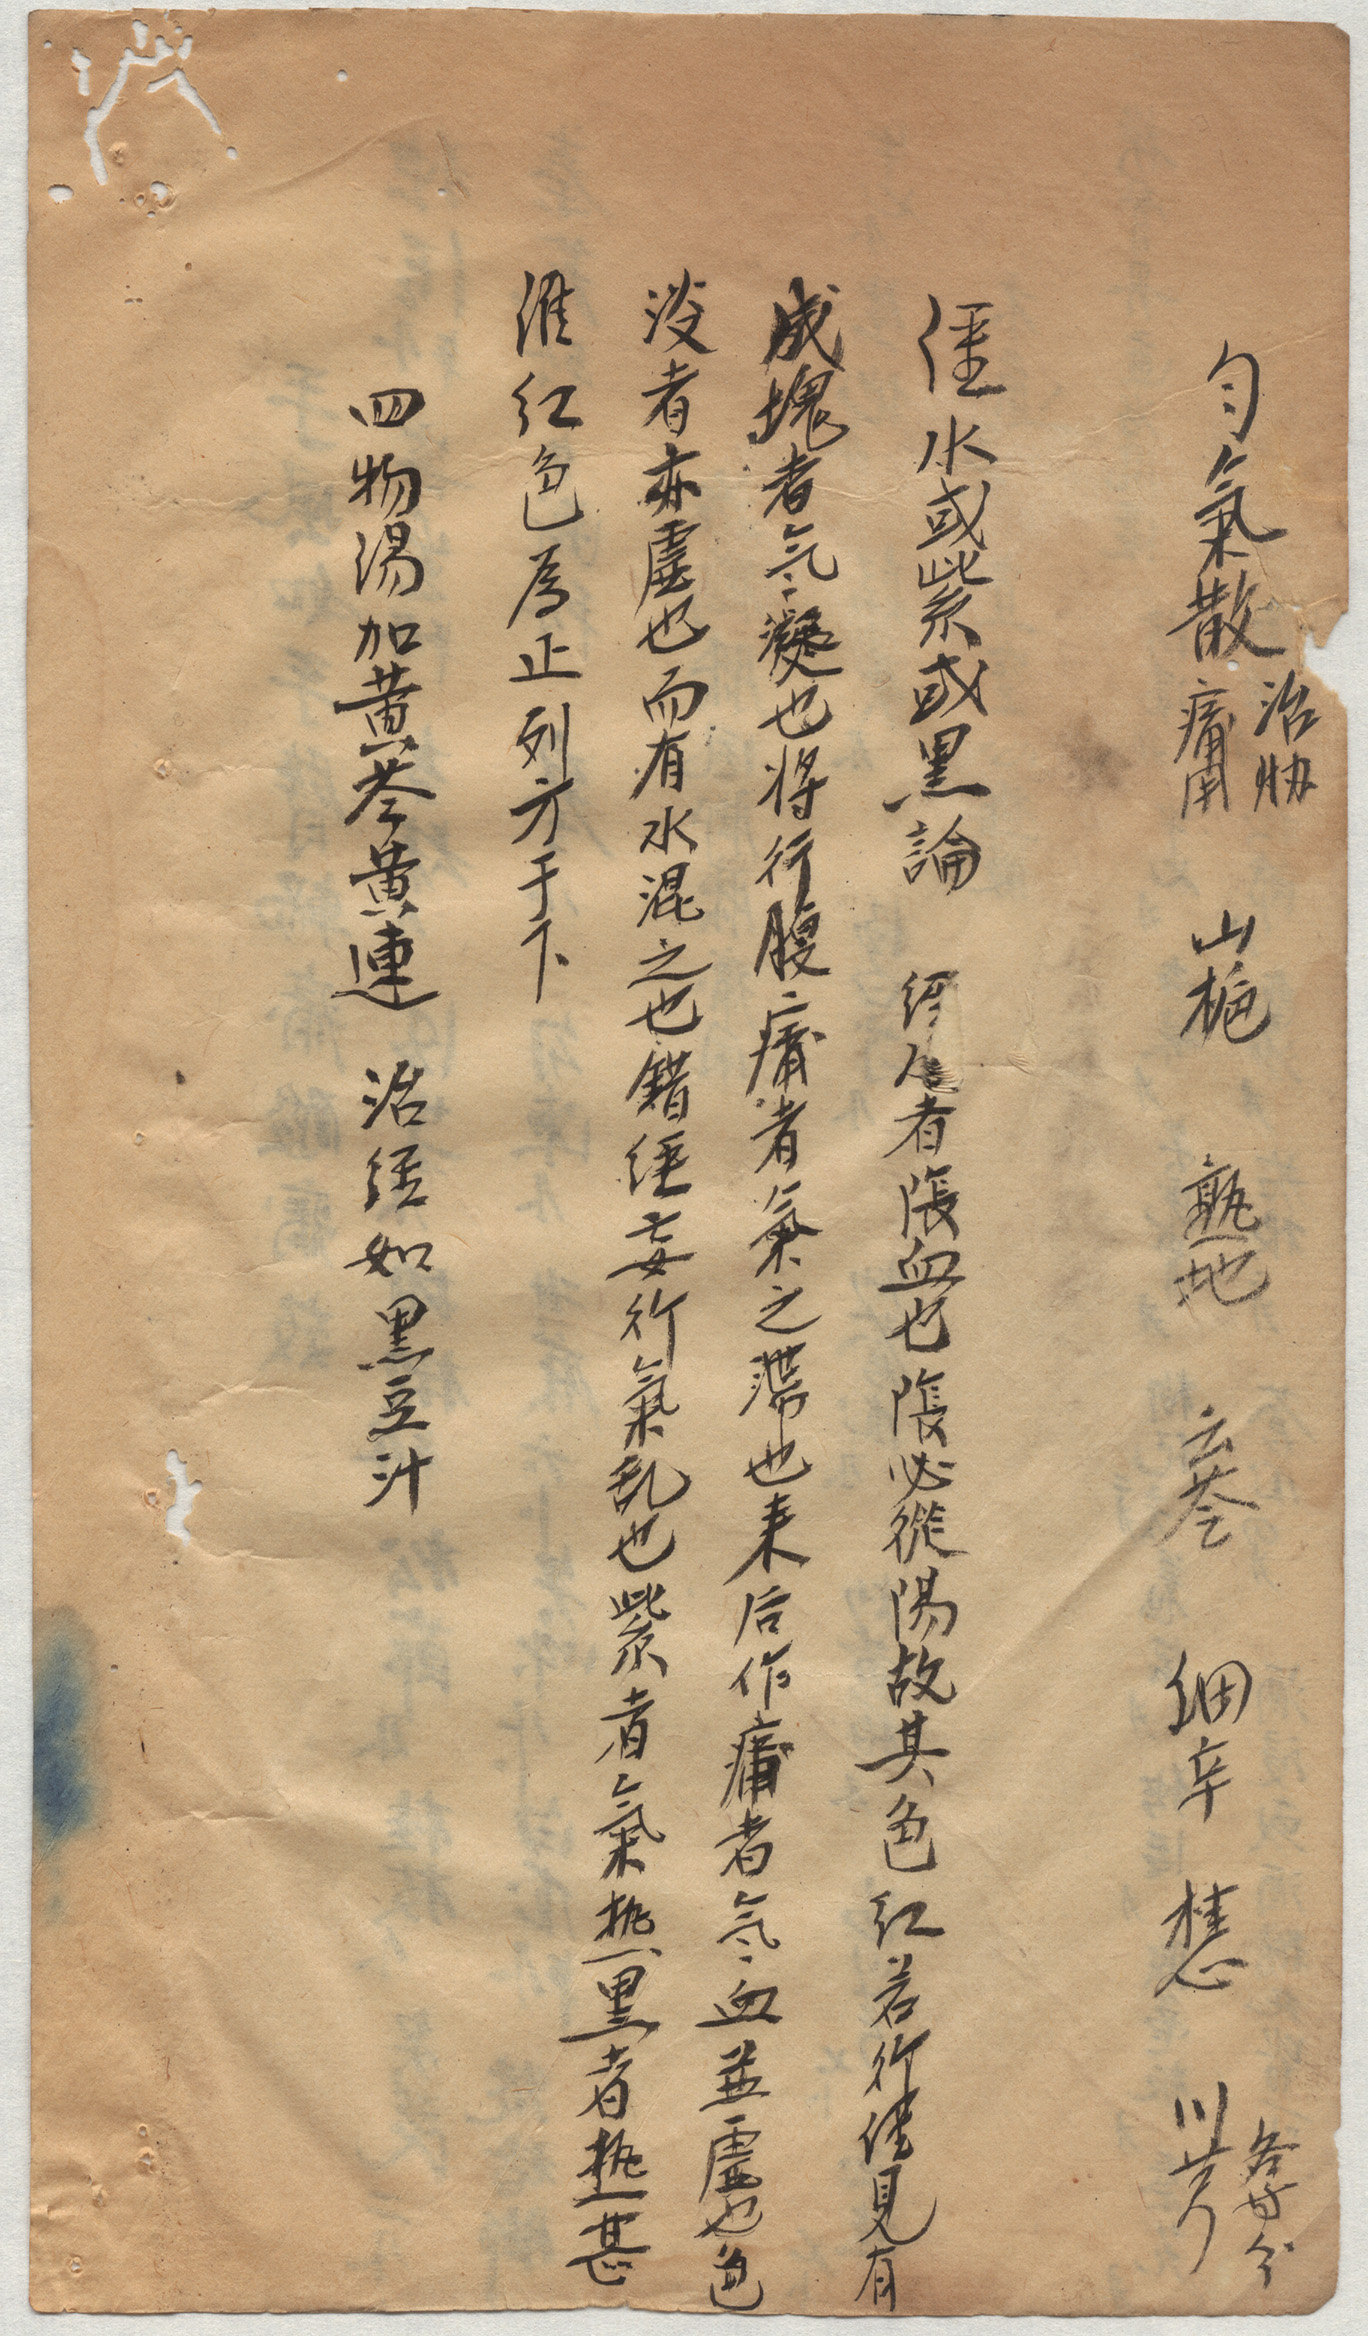 勻氣散 治胁痛 山栀 熟地 玄苓 細辛 桂心 川芎 各等分
經水或紫或黑論 經者陰血也陰必從陽故其色紅若行經見有
成塊者氣凝也將行腹痛者氣之滯也来后作痛者氣血並虛也色
淡者亦虛也而有水混之也錯經妄行氣乱也紫者氣热黑者熱甚
惟紅色為正列方于下
四物湯加黃芩黃連 治經如黑豆汁